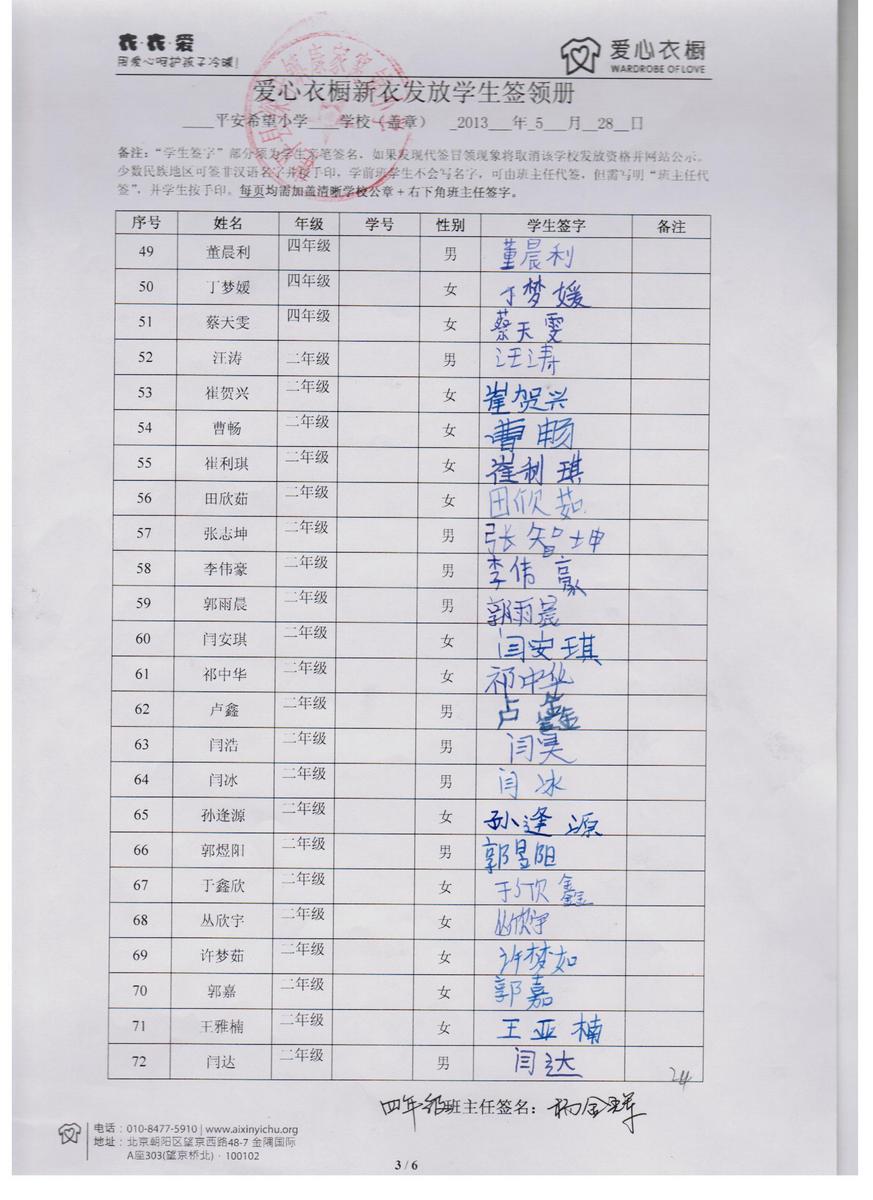 衣·衣·爱
用爱心呵护孩子冷暖!
爱心衣橱
WARDROBE OF LOVE
爱心衣橱新衣发放学生签领册
平安希望小学 学校（盖章） 2013 年 5 月 28 日
备注：“学生签字”部分须为学生亲笔签名，如果发现代签冒领现象将取消该学校发放资格并网站公示。
少数民族地区可签非汉语名字并按手印，学前班学生不会写名字，可由班主任代签，但需写明“班主任代
签”，并学生按手印。每页均需加盖清晰学校公章+右下角班主任签字。
序号 姓名 年级 学号 性别 学生签字 备注
49 董晨利 四年级 男 董晨利
50 丁梦媛 四年级 女 丁梦媛
51 蔡天雯 四年级 女 蔡天雯
52 汪涛 二年级 男 汪涛
53 崔贺兴 二年级 女 崔贺兴
54 曹畅 二年级 女 曹畅
55 崔利琪 二年级 女 崔利琪
56 田欣茹 二年级 女 田欣茹
57 张志坤 二年级 男 张智坤
58 李伟豪 二年级 男 李伟豪
59 郭雨晨 二年级 男 郭雨晨
60 闫安琪 二年级 女 闫安琪
61 祁中华 二年级 女 祁中华
62 卢鑫 二年级 男 卢鑫
63 闫浩 二年级 男 闫昊
64 闫冰 二年级 男 闫冰
65 孙逢源 二年级 女 孙逢源
66 郭煜阳 二年级 男 郭昱阳
67 于鑫欣 二年级 女 于欣鑫
68 丛欣宇 二年级 女 丛欣宇
69 许梦茹 二年级 女 许梦如
70 郭嘉 二年级 女 郭嘉
71 王雅楠 二年级 女 王亚楠
72 闫达 二年级 男 闫达
24
四年级班主任签名：杨金
电话：010-8477-5910 | www.aixinyichu.org
地址：北京朝阳区望京西路48-7 金隅国际
A座303(望京桥北) · 100102
3 / 6